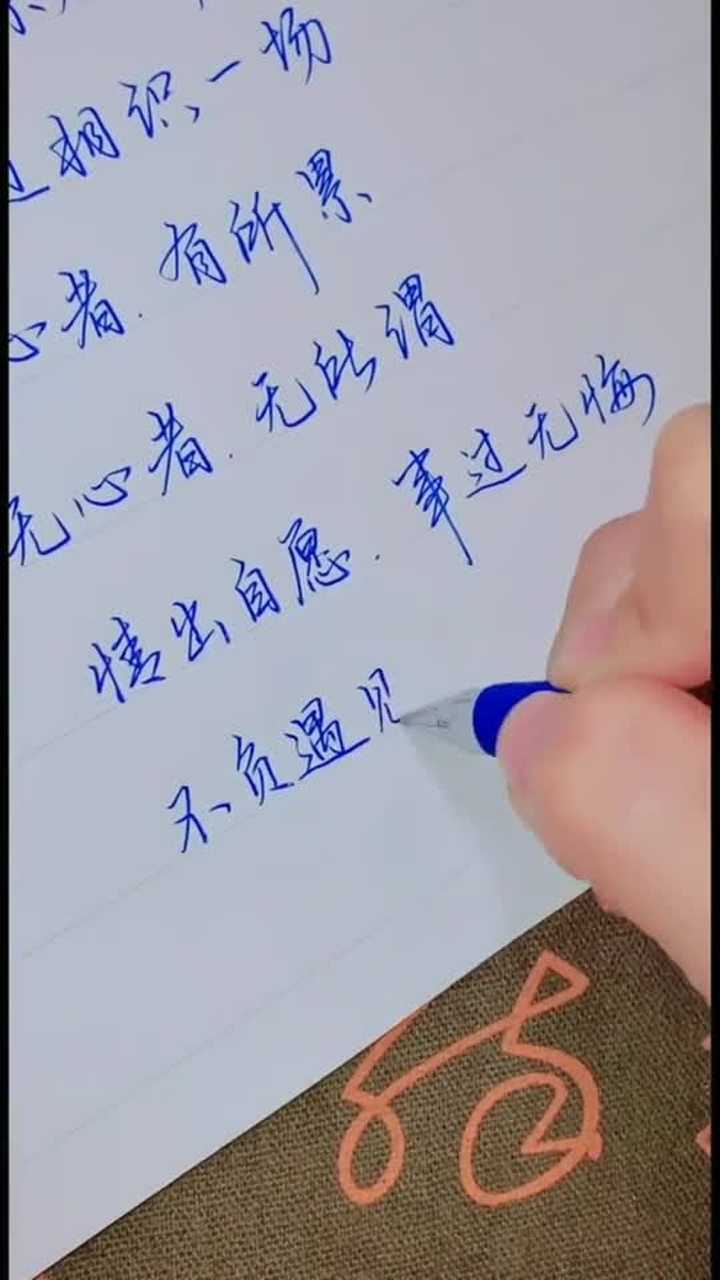 过相识一场
心者.有所累
无心者.无所谓
情出自愿.事过无悔
不负遇见